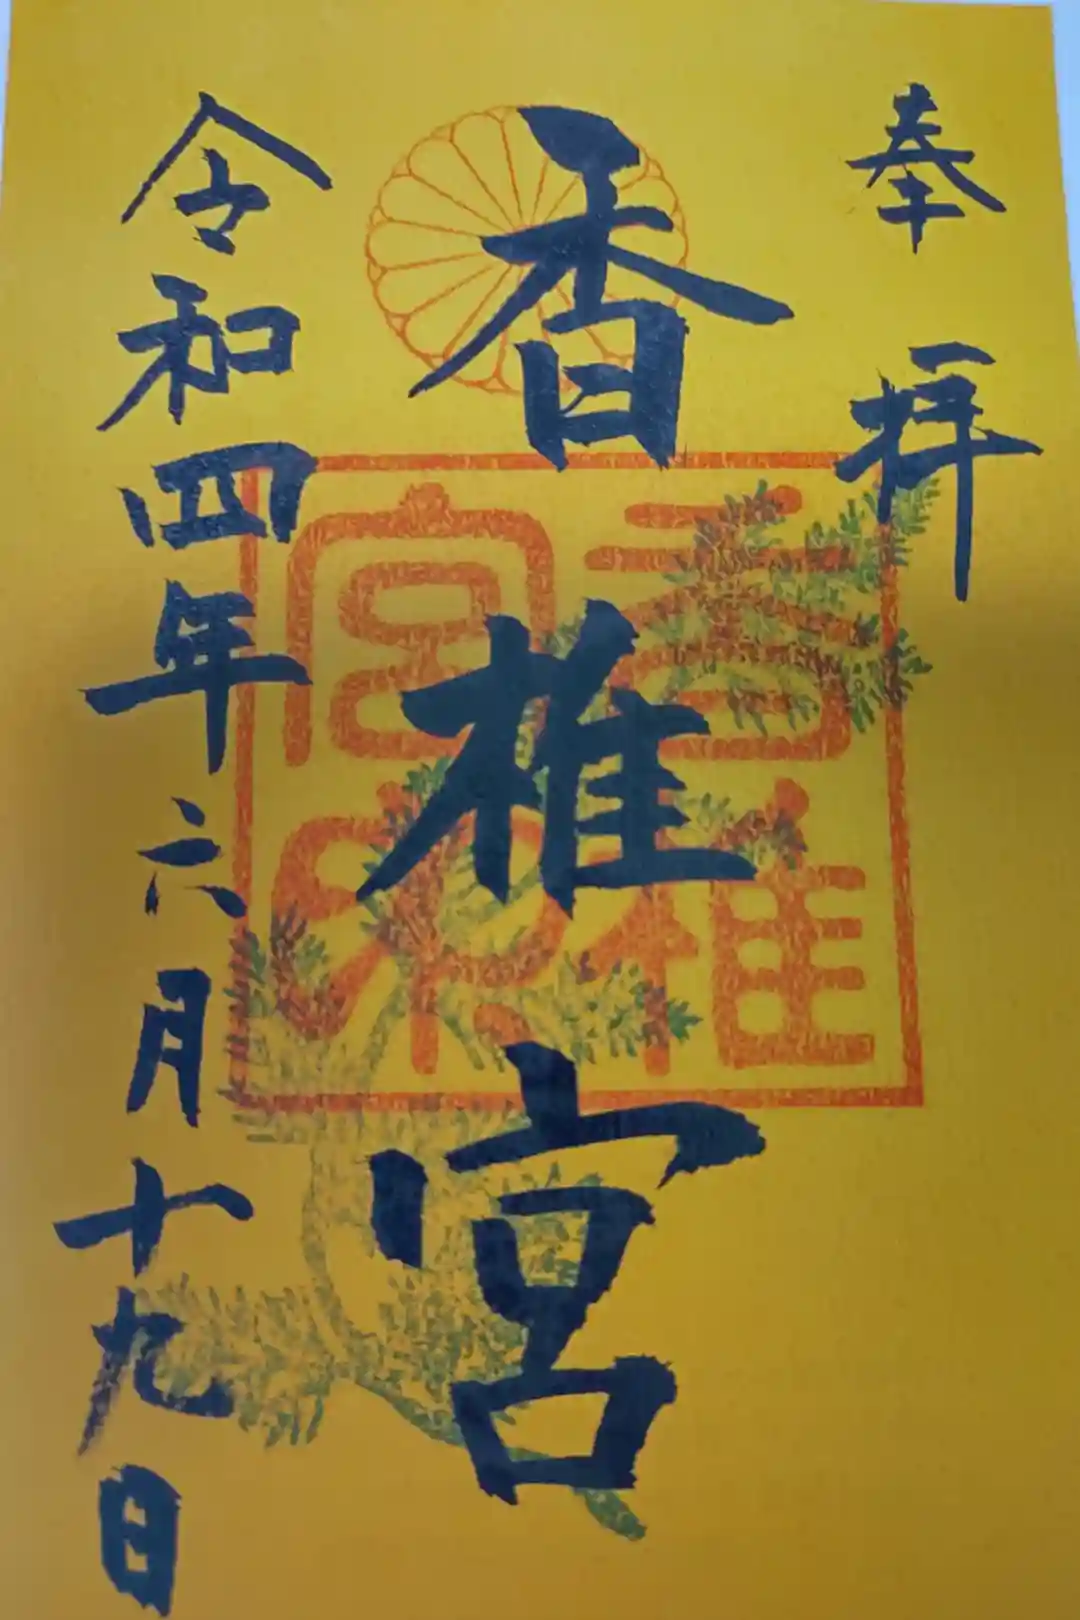 奉拝
香椎宮
香椎宮印
令和四年六月十九日